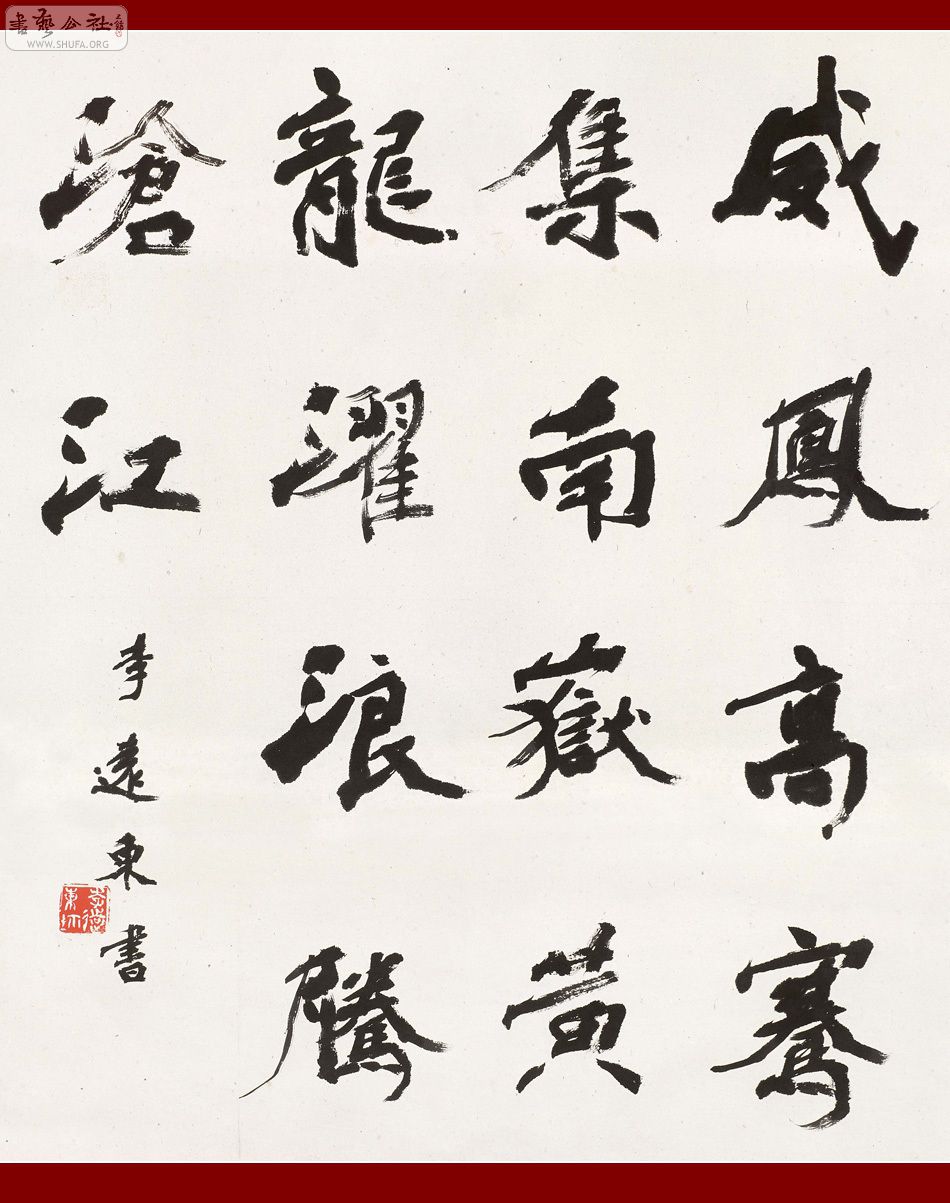 書藝公社
WWW.SHUFA.ORG
威鳳高騫
集南嶽黃
龍濯浪騰
滄江
李遠東書